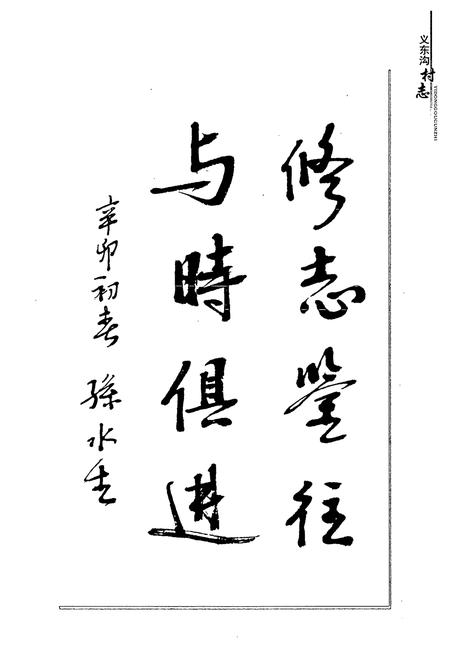 义东沟村志
YIDONGGOUCUNZHI
修志鉴往
与時俱进
辛卯初春 孫水生